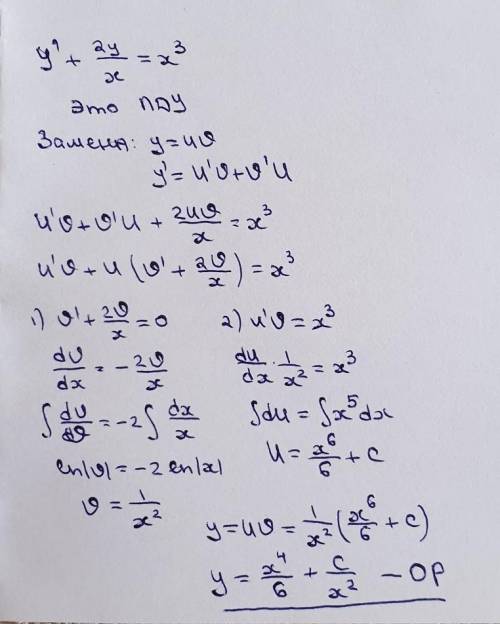 y' + 2y/x = x³
это ЛДУ
Замена: y = uv
y' = u'v + v'u
u'v + v'u + 2uv/x = x³
u'v + u (v' + 2v/x) = x³
1) v' + 2v/x = 0
dv/dx = - 2v/x
∫ dv/v = -2 ∫ dx/x
ln|v| = -2 ln|x|
v = 1/x²
2) u'v = x³
du/dx · 1/x² = x³
∫du = ∫x⁵dx
u = x⁶/6 + c
y = uv = 1/x² (x⁶/6 + c)
y = x⁴/6 + c/x² - ОР